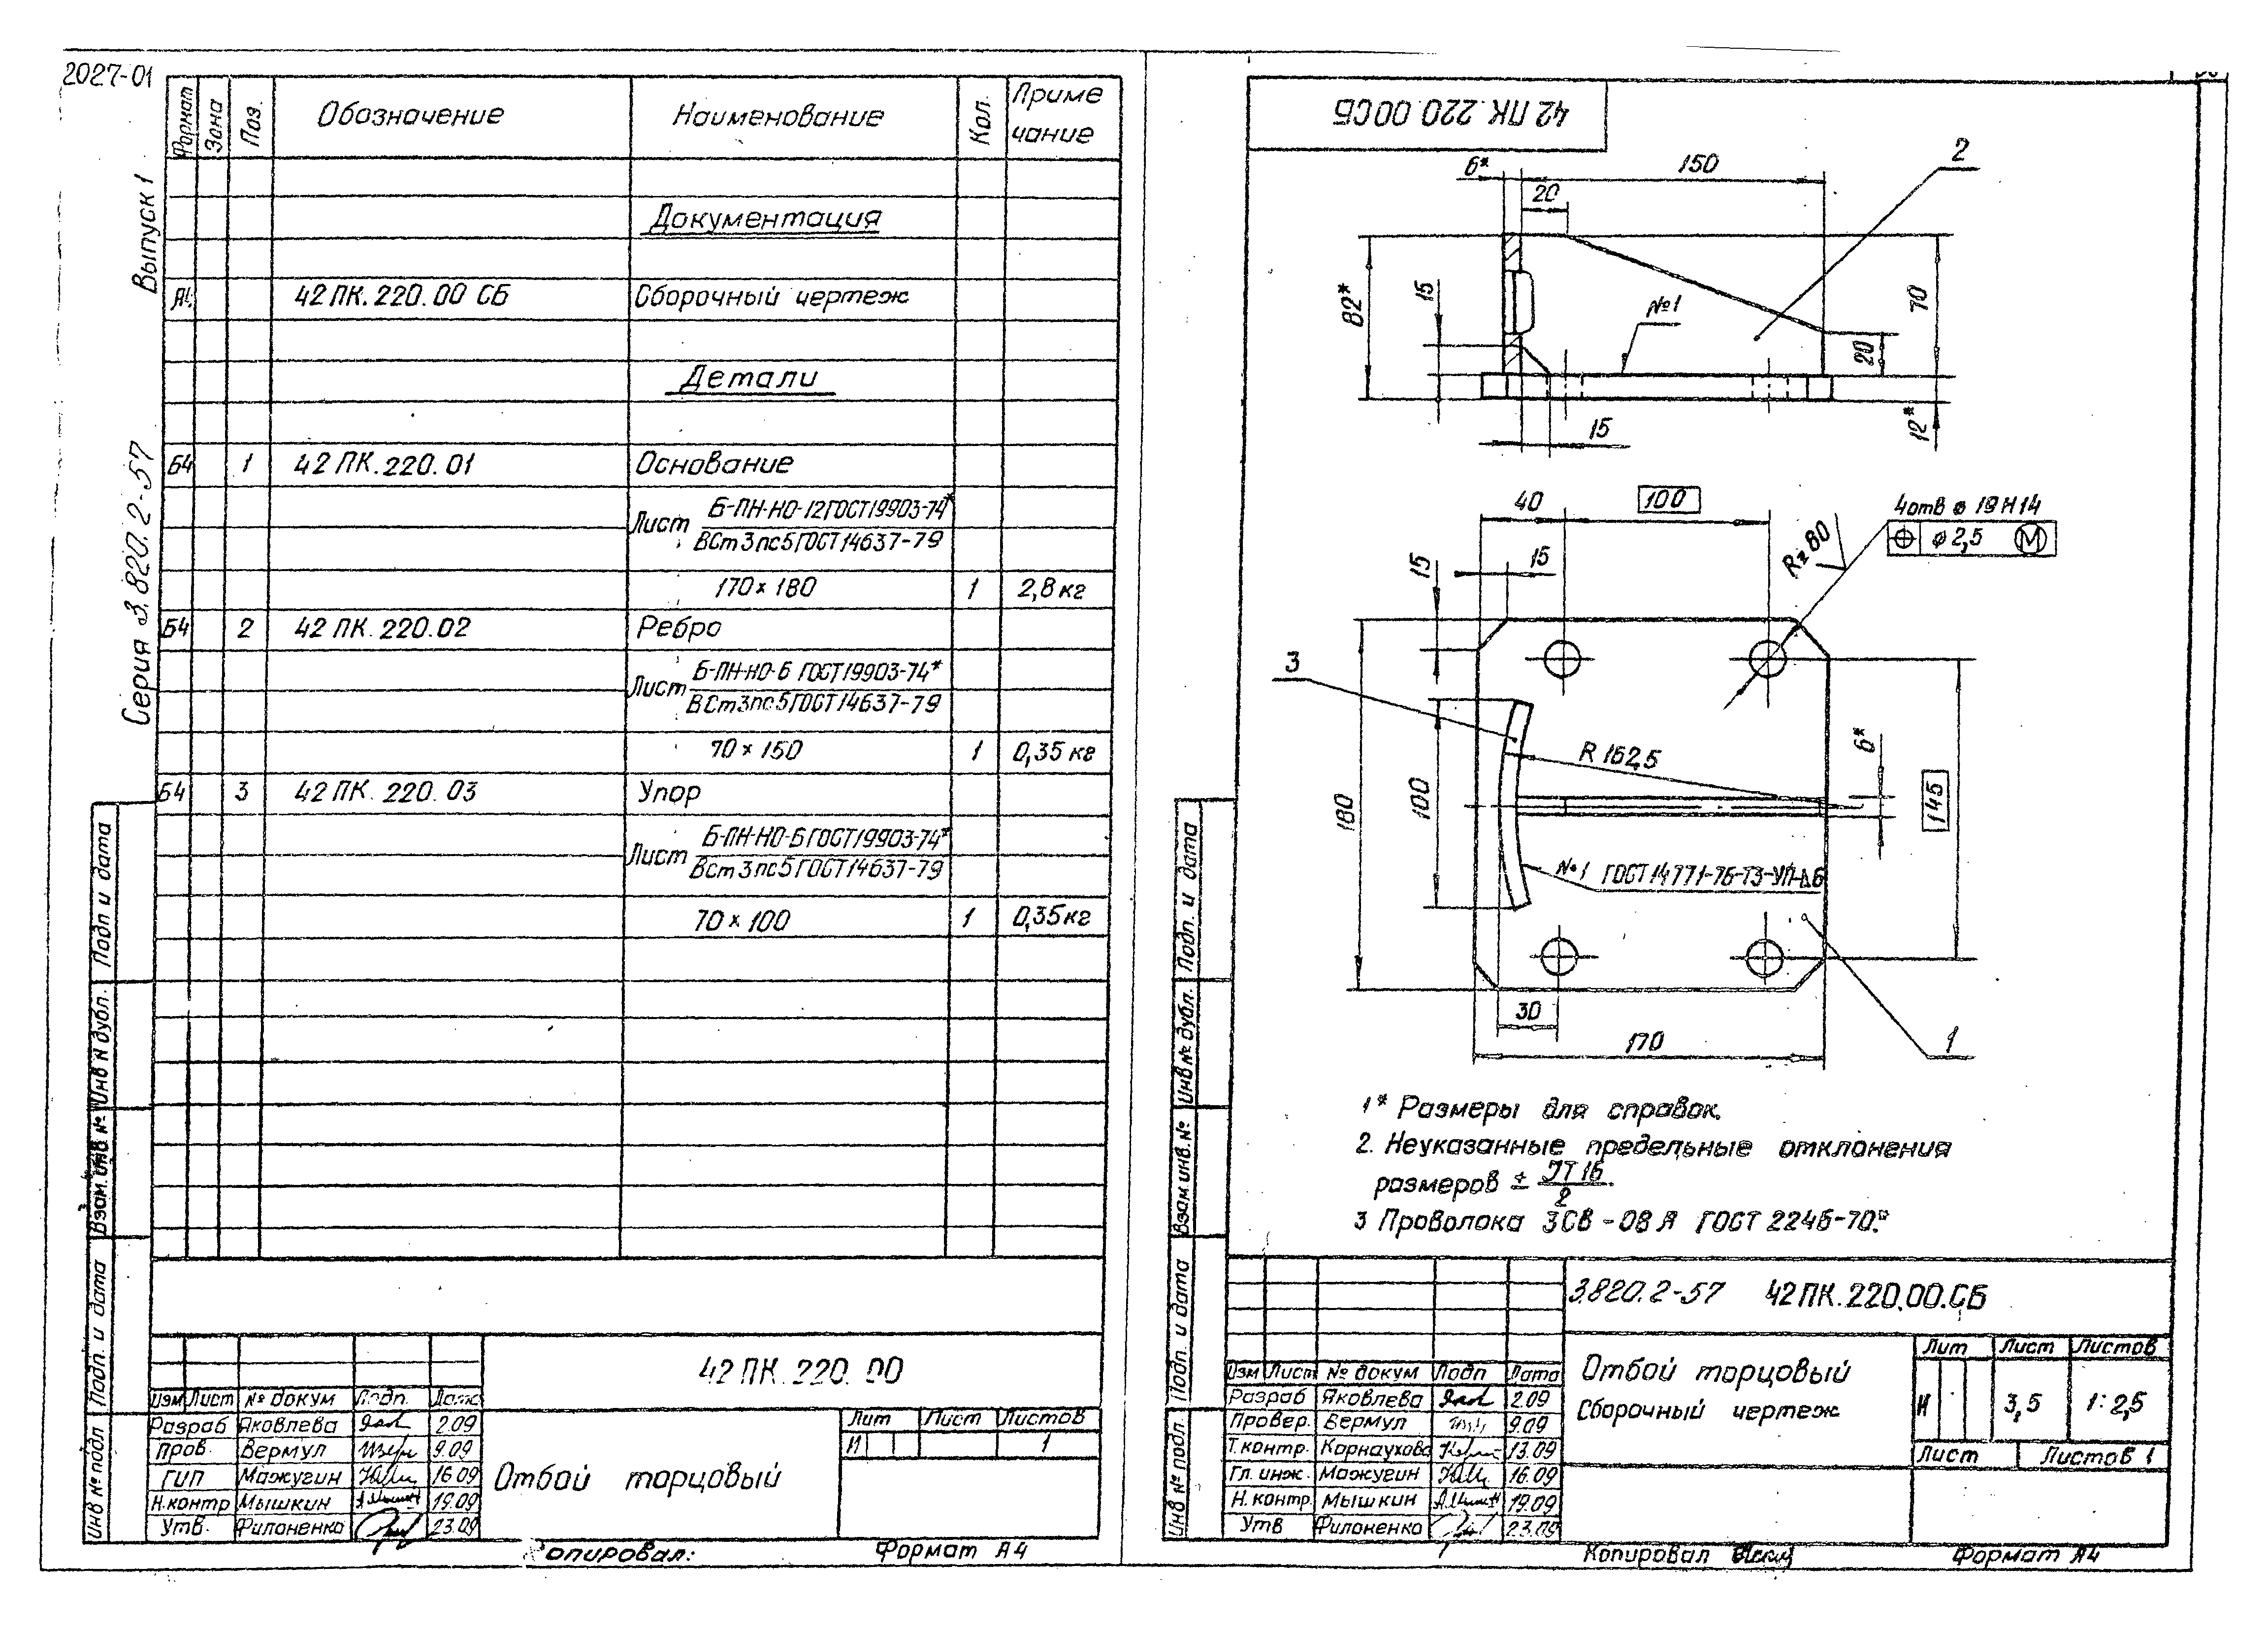 2027-01
Выпуск 1
Серия 3.820.2-57
Формат Зона Поз. Обозначение Наименование Кол. Приме чание
Документация
А4 42 ПК.220.00 СБ Сборочный чертеж
Детали
Б4 1 42 ПК.220.01 Основание
Лист Б-ПН-НО-12 ГОСТ 19903-74*
ВСт3пс5 ГОСТ 14637-79
170 × 180 1 2,8 кг
Б4 2 42 ПК.220.02 Ребро
Лист Б-ПН-НО-6 ГОСТ 19903-74*
ВСт3пс5 ГОСТ 14637-79
70 × 150 1 0,35 кг
Б4 3 42 ПК.220.03 Упор
Лист Б-ПН-НО-6 ГОСТ 19903-74*
ВСт3пс5 ГОСТ 14637-79
70 × 100 1 0,35 кг
Подп и дата
Инв N дубл.
Взам. инв №
Подп. и дата
Инв № подл
42 ПК.220.00
Изм Лист № докум Подп. Дата
Разраб Яковлева 2.09
Пров. Вермул 9.09
ГИП Мажугин 16.09
Н.контр Мышкин 19.09
Утв. Филоненко 23.09
Отбой торцовый
Лит Лист Листов
И 1
Копировал:
Формат А4
42 ПК.220.00СБ
6*
150
2
20
82*
15
№1
70
20
12*
15
40
100
4 отв ⌀ 19 H14
⌖ ⌀ 2,5 Ⓜ
Rz 80
15
15
3
R 162,5
6*
180
100
145
№1 ГОСТ 14771-76-Т3-УП-⊿6
30
170
1
1* Размеры для справок.
2. Неуказанные предельные отклонения
размеров ± IT16/2.
3 Проволока 3СВ-08А ГОСТ 2246-70.*
Подп. и дата
Инв № дубл.
Взам инв. №
Подп. и дата
Инв № подл.
3.820.2-57 42 ПК.220.00.СБ
Изм Лист № докум Подп Дата
Разраб Яковлева 2.09
Провер. Вермул 9.09
Т.контр. Корнаухова 13.09
Гл. инж. Мажугин 16.09
Н. контр. Мышкин 19.09
Утв Филоненко 23.09
Отбой торцовый
Сборочный чертеж
Лит Лист Листов
И 3,5 1:2,5
Лист Листов 1
Копировал
Формат А4